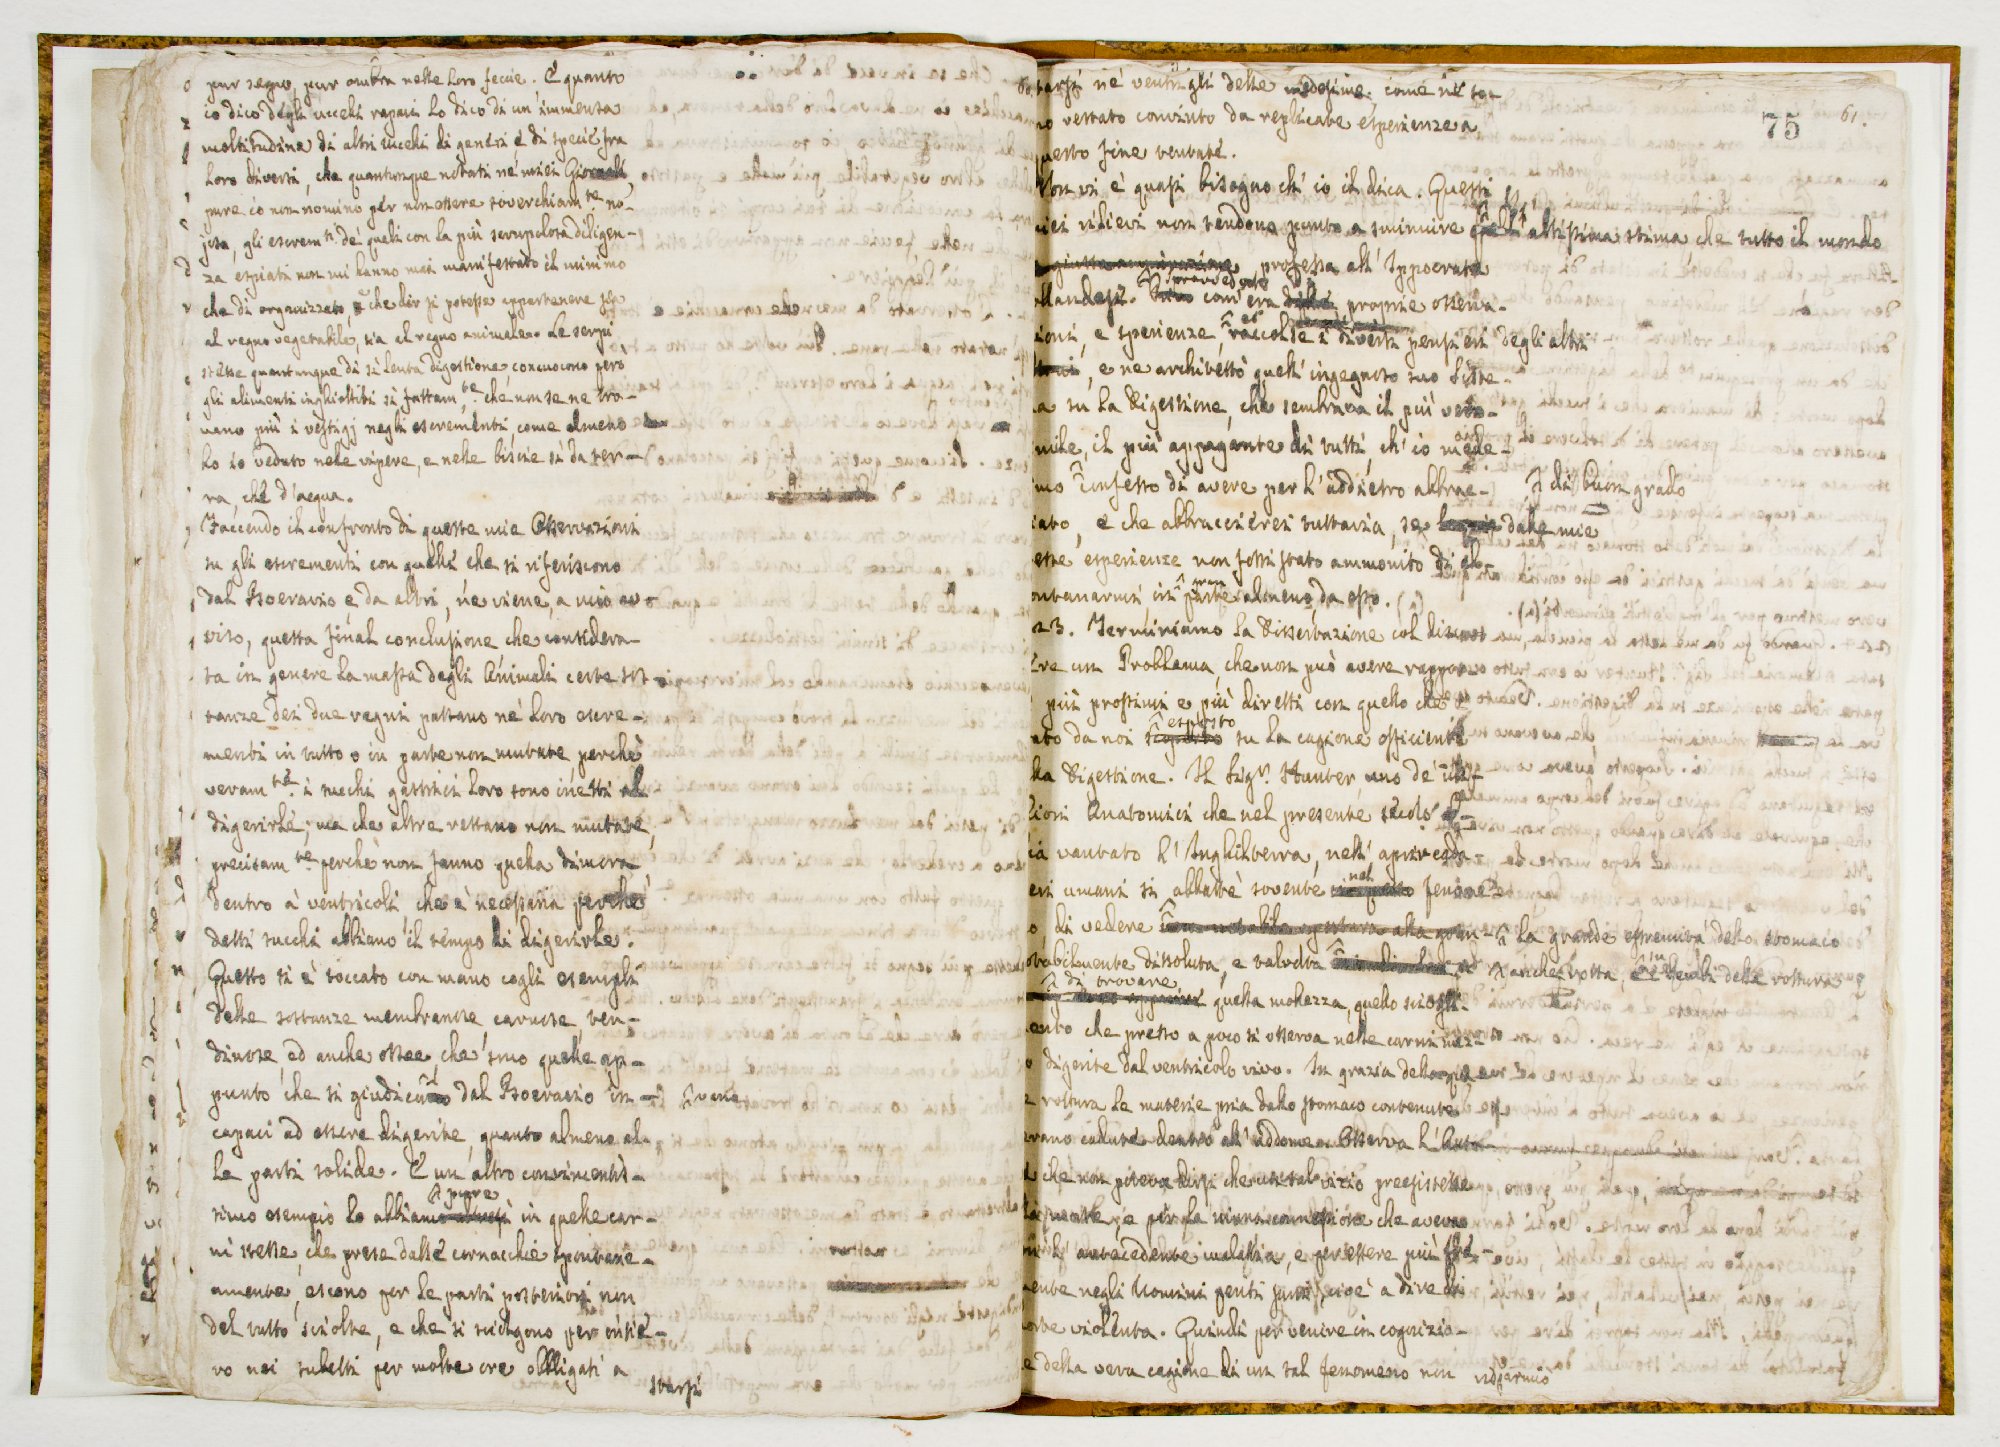 pur segno, pur ombra nelle loro feccie. E quanto
io dico degli uccelli rapaci lo dico di un'immensa
moltitudine di altri uccelli di generi e di specie fra
loro diversi, che quantunque notati ne' miei Giornali,
pure io non nomino per non essere soverchiam.te no-
joso, gli escrem.ti de' quali con la più scrupolosa diligen-
za espiati non mi hanno mai manifestato il minimo
che di organizzato, che dir si potesse appartenere sia
al regno vegetabile, sia al regno animale. Le serpi
stesse quantunque di sì lenta digestione, concuocono però
gli alimenti inghiottiti sì fattam.te che non se ne tro-
vano più i vestigj negli escrementi, come almeno
ho io veduto nelle vipere, e nelle biscie sì da ter-
ra, che d'acqua.
Facendo il confronto di queste mie Osservazioni
su gli escrementi con quelli che si riferiscono
dal Boeravio e da altri, ne viene, a mio av-
viso, questa final conclusione che considera-
ta in genere la massa degli Animali certe sos-
tanze dei due regni passano ne' loro escre-
menti in tutto o in parte non mutate perchè
veram.te i succhi gastrici loro sono inetti al
digerirle; ma che altre restano non mutate,
precisam.te perchè non fanno quella dimora
dentro a' ventricoli che è necessaria perchè
detti succhi abbiano il tempo di digerirle.
Questo si è toccato con mano cogli esempli
delle sostanze membranose, carnose, ten-
dinose, ed anche ossee, che sono quelle ap-
punto che si giudicano dal Boeravio in-
capaci ad essere digerite, quanto almeno al-
le parti solide. E un altro convincentis-
simo esempio lo abbiamo pure in quelle car-
ni stesse, che prese dalle cornacchie spontane-
amente, escono per le parti posteriori non
del tutto sciolte, e che si sciolgono per intie-
ro nei tubetti per molte ore obbligati a
starsi
starsi ne' ventrigli delle medesime, come ne so-
no restato convinto da replicate esperienze a
questo fine tentate.
Non vi è quasi bisogno ch'io il dica. Questi
miei rilievi non tendono punto a sminuire quell'altissima stima che tutto il mondo
professa all'Ippocrate
ollandese. provveduto com'era di proprie osserva-
zioni, e sperienze, raccolse i diversi pensieri degli altri
, e ne architettò quell'ingegnoso suo Siste-
ma su la Digestione, che sembrava il più vero-
simile, il più appagante di tutti, ch'io mede-
simo confesso di avere per l'addietro abbrac- di buon grado
ciato, e che abbraccierei tuttavia, se dalle mie
stesse esperienze non fossi stato ammonito di al-
lontanarmi, in gran parte almeno, da esso. (a)
23. Terminiamo la Dissertazione col discu-
tere un Problema, che non può avere rapporto
più prossimi e più diretti con quello che è
stato da noi esposto su la cagione efficiente
della Digestione. Il Sig.r Hunter uno de' mi-
gliori Anatomici che nel presente secolo ab-
bia vantato l'Inghilterra, nell'aprir cada-
veri umani si abbattè sovente nel fenome-
no di vedere la grande estremità dello stomaco
notabilmente disciolta, e talvolta anche rotta,
di trovare quella mollezza, quello sciogli-
mento che presso a poco si osserva nelle carni mez-
zo digerite dal ventricolo vivo. In grazia della
rottura le materie pria dallo stomaco contenute
erano cadute dentro all'addome. Osserva l'Auto-
re che non poteva dirsi che un tal vizio preesistesse
alla morte, e per la niuna connessione che aveva
con l'antecedente malattia, e per essere più fre-
quente negli Uomini periti sani, cioè a dire di
morte violenta. Quindi per venire in cognizio-
ne della vera cagione di un tal fenomeno non
75
61.